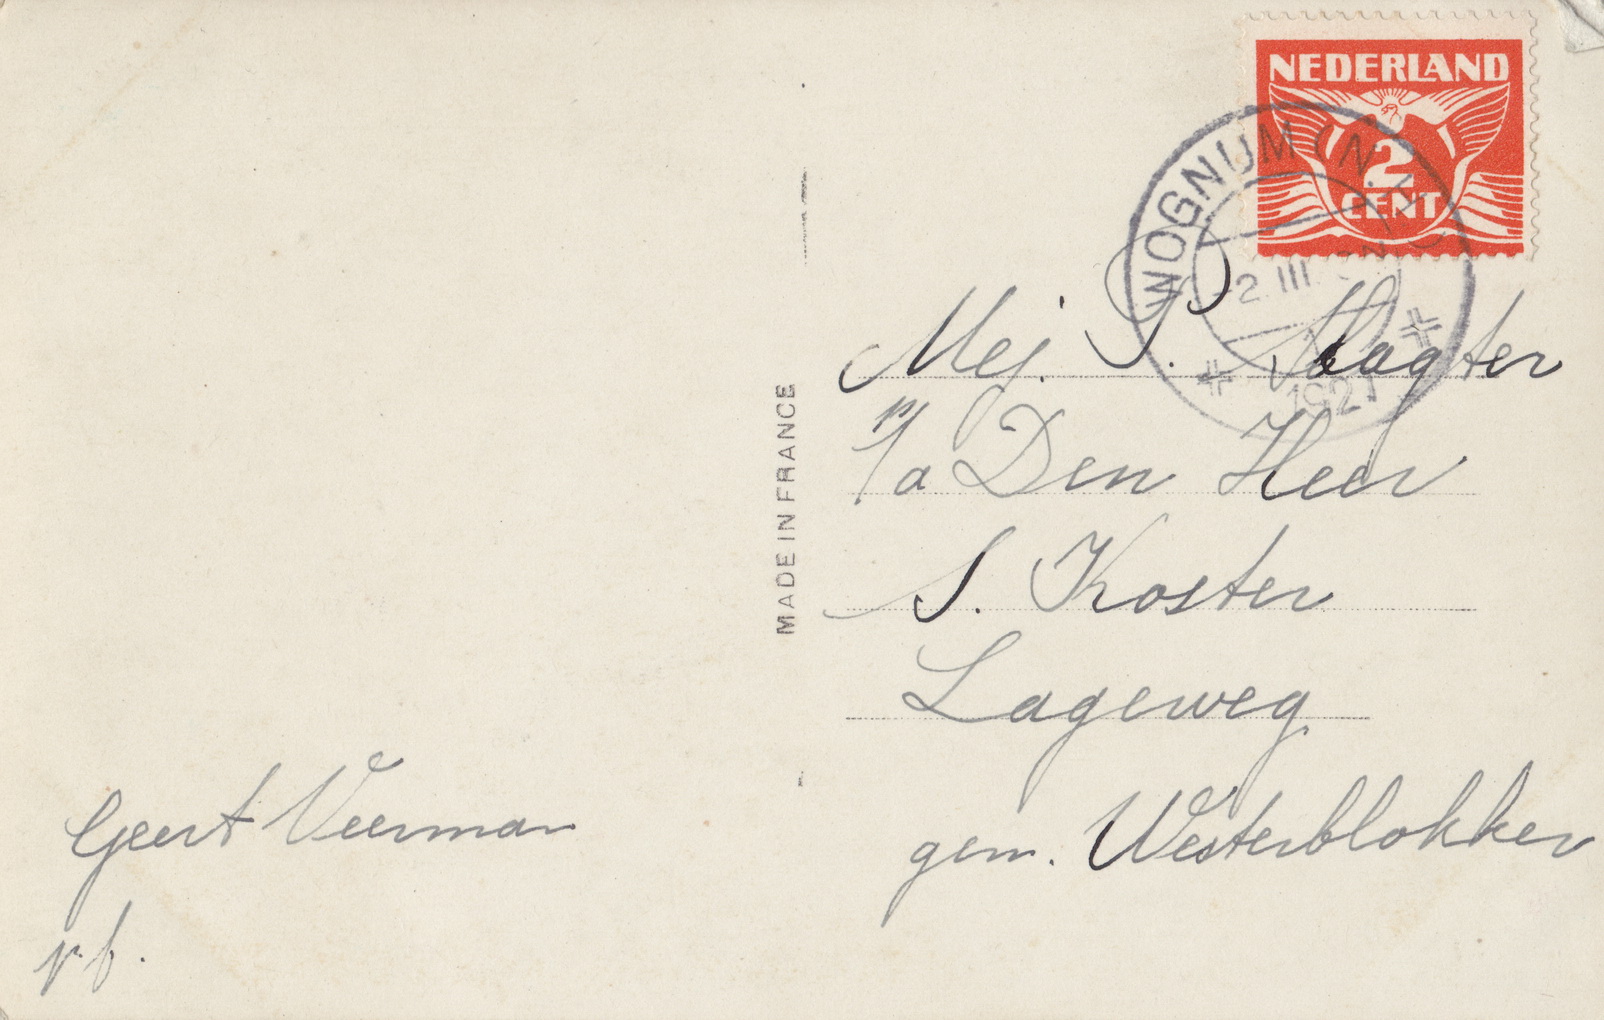 NEDERLAND
2
CENT
WOGNUM (N.H.)
2 III
1927
MADE IN FRANCE
Mej. P. Slagter
p/a Den Heer
S. Koster
Lageweg
gem. Westerblokker
Geert Veerman
p.f.